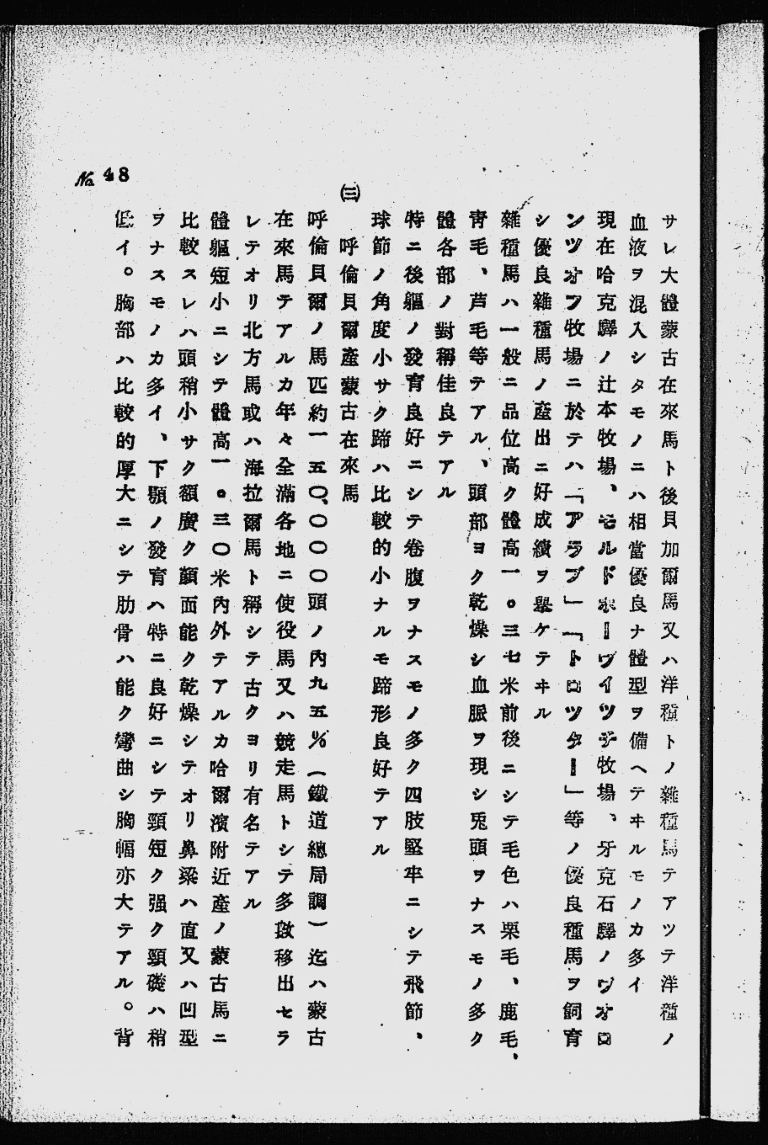 サレ大體蒙古在來馬ト後貝加爾馬又ハ洋種トノ雜種馬テアツテ洋種ノ
血液ヲ混入シタモノニハ相當優良ナ體型ヲ備ヘテヰルモノカ多イ
現在哈克驛ノ辻本牧場、モルドホーヴイツチ牧場、牙克石驛ノヴオロ
ンツオフ牧場ニ於テハ「アラブ」「トロツター」等ノ優良種馬ヲ飼育
シ優良雜種馬ノ產出ニ好成績ヲ擧ケテヰル
雜種馬ハ一般ニ品位高ク體高一。三七米前後ニシテ毛色ハ栗毛、鹿毛、
青毛、芦毛等テアル、頭部ヨク乾燥シ血脈ヲ現シ兎頭ヲナスモノ多ク
體各部ノ對稱佳良テアル
特ニ後軀ノ發育良好ニシテ卷腹ヲナスモノ多ク四肢堅牢ニシテ飛節、
球節ノ角度小サク蹄ハ比較的小ナルモ蹄形良好テアル
㈢ 呼倫貝爾產蒙古在來馬
呼倫貝爾ノ馬匹約一五〇、〇〇〇頭ノ內九五％（鐵道總局調）迄ハ蒙古
在來馬テアルカ年々全滿各地ニ使役馬又ハ競走馬トシテ多數移出セラ
レテオリ北方馬或ハ海拉爾馬ト稱シテ古クヨリ有名テアル
體軀短小ニシテ體高一。三〇米內外テアルカ哈爾濱附近產ノ蒙古馬ニ
比較スレハ頭稍小サク額廣ク顏面能ク乾燥シテオリ鼻梁ハ直又ハ凹型
ヲナスモノカ多イ、下顎ノ發育ハ特ニ良好ニシテ頸短ク强ク頸礎ハ稍
低イ。胸部ハ比較的厚大ニシテ肋骨ハ能ク彎曲シ胸幅亦大テアル。背
No 48